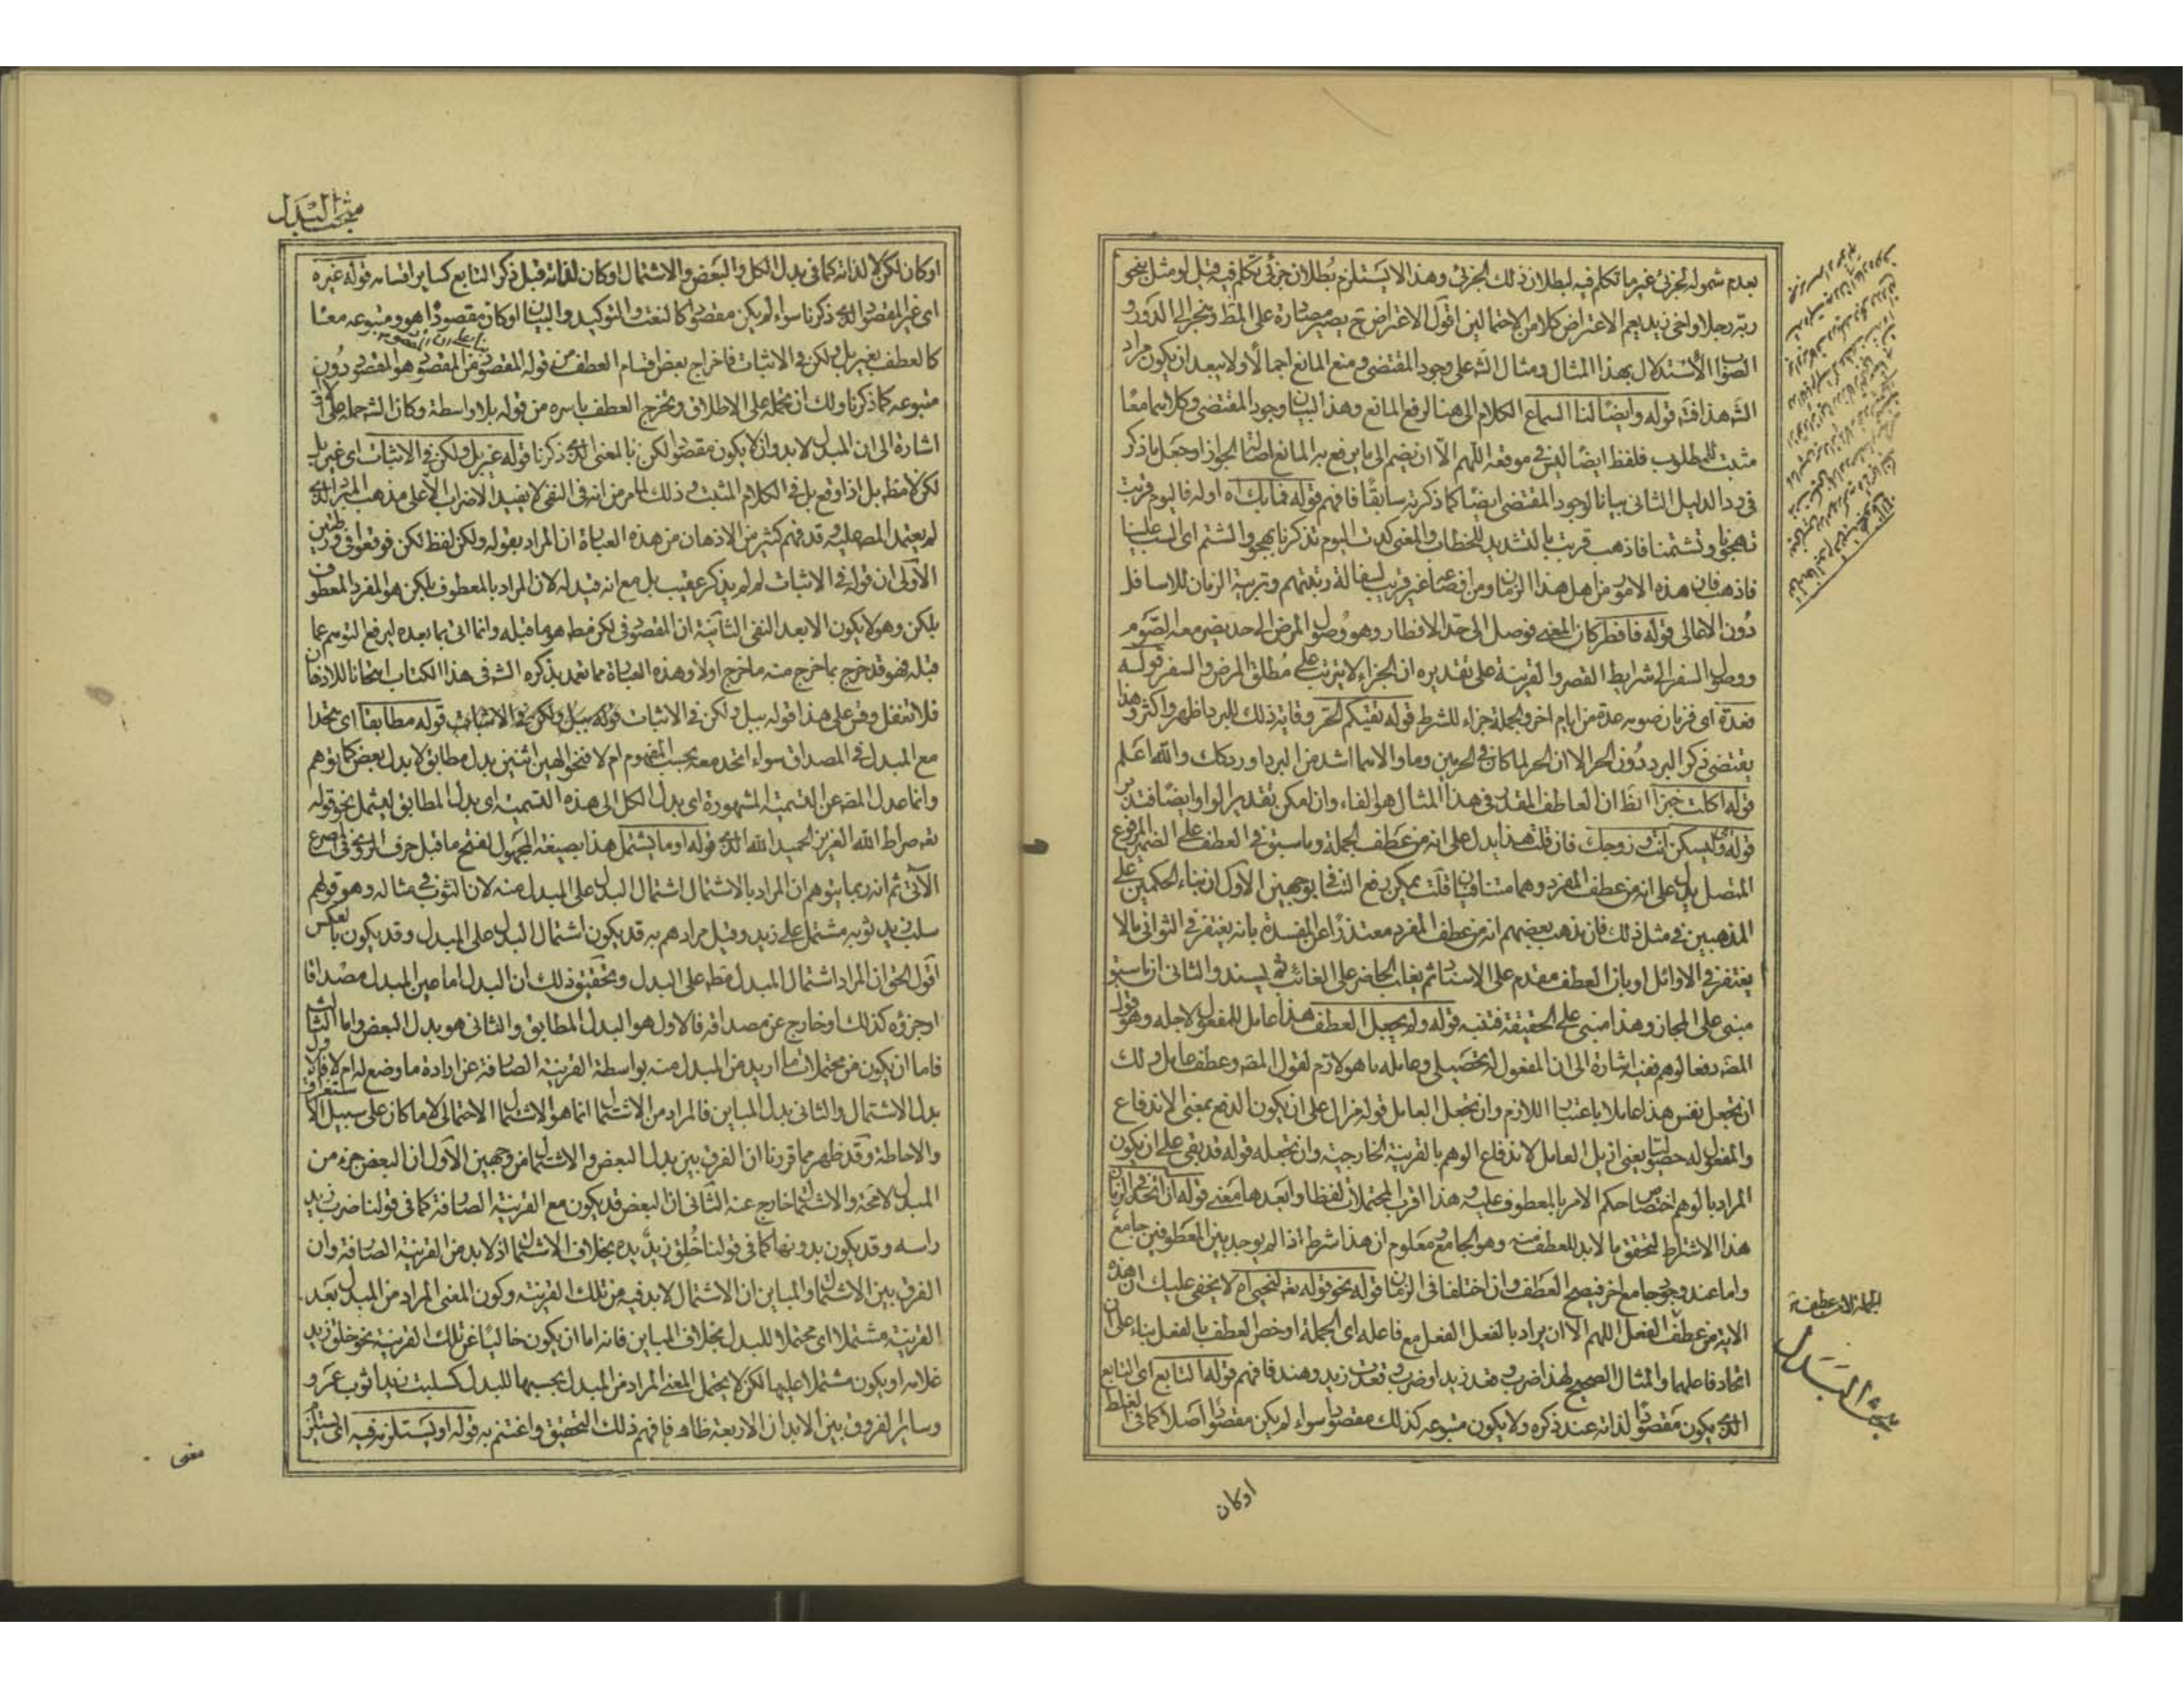 بعدم شموله لجزئ غير ما تكلم فيه لبطلان ذلك الجزئ وهذا لا يستلزم بطلان جزئ تكلم فيه قيل او مثل بنحو
ربه رجلا واخى زيد يعم الاعتراض كلا من الاحتمالين اقول الاعتراض ح يصير مصادرة على المط وينجر الى الدور و
الصواب الاستدلال بهذا المثال ومثال الش على وجود المقتضى ومنع المانع اجمالا ولا يبعد ان يكون مراد
الش هذا فت قوله وايضا لنا السماع الكلام الى هنا لرفع المانع وهذا لبيان وجود المقتضى وكلاهما معا
مثبت للمطلوب فلفظ ايضا ليس فى موقعه اللهم الا ان يضم الى ما يرفع به المانع اصالة الجواز او جعل ما ذكر
فى رد الدليل الثانى بيانا لوجود المقتضى ايضا كما ذكرته سابقا فافهم قوله فما بك اه اوله فاليوم قربت
تهجونا وتشتمنا فاذهب قربت بالتشديد للخطاب والمعنى كدت اليوم تذكرنا بهجو والشتم اى السب علينا
فاذهب فان هذه الامور من اهل هذا الزمان ومن اقصاء غير قريب لسفالة رتبتهم وتربية الزمان للاسافل
دون الاعالى قوله فافطر كان المعنى فوصل الى حد الافطار وهو وصول المرض الى حد يضر معه الصوم
ووصول السفر الى شرايط القصر والقرينة على تقديره ان الجزاء لا يترتب على مطلق المرض والسفر قوله
فعدة اى فزمان صومه عدة من ايام اخر والجملة جزاء للشرط قوله تقيكم الحر وقاية ذلك للبرد اظهر واكثر وهذا
يقتضى ذكر البرد دون الحر الا ان الحر لما كان فى الحرمين وما والاهما اشد من البرد اورد كك والله اعلم
قوله اكلت خبزا الظ ان العاطف المقدر فى هذا المثال هو الفاء وان امكن تقدير الواو ايضا فتدبر
قوله وليسكن انت وزوجك فان قلت هذا يدل على انه من عطف الجملة وما سبق فى العطف على الضمير المرفوع
المتصل يدل على انه من عطف المفرد وهما متنافيان قلت يمكن رفع التنافى بوجهين الاول ان بناء الحكمين على
المذهبين فى مثل ذلك فان مذهب بعضهم انه من عطف المفرد معتذرا عن المفسدة بانه يغتفر فى الثوانى ما لا
يغتفر فى الاوائل او بان العطف مقدم على الاسناد ثم يغلب الحاضر على الغائب ثم يسند والثانى ان ما سبق
مبنى على المجاز وهذا مبنى على الحقيقة فتنبه قوله ولم يجعل العطف هذا عامل للمفعول لاجله وهو قول
المص دفعا لوهم ففيه اشارة الى ان المفعول له تحصيلى وعامله ما هو لازم لقول المص وعطف عامل ولك
ان تجعل نفس هذا عاملا باعتبار اللازم وان تجعل العامل قوله مزال على ان يكون الدفع بمعنى الاندفاع
والمفعول له حصوليا يعنى ازيل العامل لاندفاع الوهم بالقرينة الخارجية وان تجعله قوله قد بقى على ان يكون
المراد بالوهم اختصاص حكم الامر بالمعطوف عليه وهذا اقرب المحتملات لفظا وابعدها معنى قوله ان اتحد فى الزمان
هذا الاشتراط لتحقق ما لا بد للعطف منه وهو الجامع ومعلوم ان هذا شرط اذا لم يوجد بين المعطوفين جامع
واما عند وجود جامع اخر فيصح العطف وان اختلفا فى الزمان قوله نحو قوله تعه لنحيى اه لا يخفى عليك ان هذه
الاية من عطف الفعل اللهم الا ان يراد بالفعل الفعل مع فاعله اى الجملة او خص العطف بالفعل بناء على ان
اتحاد فاعلهما والمثال الصحيح لهذا ضرب وقعد زيد او ضرب وقعدت زيد وهند فافهم قوله التابع اى التابع
الذى يكون مقصودا لذاته عند ذكره ولا يكون متبوعه كذلك مقصودا سواء لم يكن مقصودا اصلا كما فى الغلط
مبحث البدل
اوكان
مبحث البدل
او كان لكن لا لذاته كما فى بدل الكل والبعض والاشتمال او كان لذاته قبل ذكر التابع كساير اقسامه قوله غيره
اى غير المقصود الذى ذكرنا سواء لم يكن مقصودا كالنعت والتوكيد والبيان او كان مقصودا هو ومتبوعه معا
كالعطف بغير بل ولكن فى الاثبات فاخراج بعض اقسام العطف من قوله المقصود فمن المقصود هو المقصود دون
متبوعه كما ذكرنا ولك ان تحمله على الاطلاق وتخرج العطف باسره من قوله بلا واسطة وكان الش حمله على
اشارة الى ان المبدل لا بد وان لا يكون مقصودا لكن بالمعنى الذى ذكرنا قوله غير بل ولكن فى الاثبات اى غير بل
لكن لا مط بل اذا وقع بل فى الكلام المثبت وذلك لما مر من انه فى النفى لا يفيد الاضراب الا على مذهب المبرد الذى
لم يعتمد المص عليه وقد فهم كثير من الاذهان من هذه العبارة ان المراد بقوله ولكن لفظ لكن فوقعوا فى ورطتين
الاولى ان قوله فى الاثبات لم لم يذكر عقيب بل مع انه قيد له لان المراد بالمعطوف بلكن هو المفرد المعطوف
بلكن وهو لا يكون الا بعد النفى الثانية ان المقصود فى لكن فيط هو ما قبله وانما اتى بما بعده ليرفع التوهم عما
قبله فهو قد خرج بما خرج منه ما خرج اولا وهذه العبارة مما تعمد بذكره الش فى هذا الكتاب امتحانا للاذهان
فلا تغفل وقس على هذا قوله ببل ولكن فى الاثبات قوله ببل ولكن فى الاثبات قوله مطابقا اى متحدا
مع المبدل فى المصداق سواء اتحد معه بحسب المفهوم ام لا فنحو الهين اثنين بدل مطابق لا بدل بعض كما توهم
وانما عدل المص عن التسمية المشهورة اى بدل الكل الى هذه التسمية اى بدل المطابق ليشمل نحو قوله
تعه صراط الله العزيز الحميد الله الذى قوله او ما يشتمل هذا بصيغة المجهول لفتح ما قبل حرف الروى فى المصرع
الآتى ثم انه ربما يتوهم ان المراد بالاشتمال اشتمال البدل على المبدل منه لان الثوب فى مثاله وهو قولهم
سلب زيد ثوبه مشتمل على زيد وقيل مرادهم به قد يكون اشتمال البدل على المبدل وقد يكون بالعكس
اقول الحق ان المراد اشتمال المبدل مط على البدل وتحقيق ذلك ان البدل اما عين المبدل مصداقا
او جزؤه كذلك او خارج عن مصداقه فالاول هو البدل المطابق والثانى هو بدل البعض واما الثالث
فاما ان يكون من محتملات ما اريد من المبدل منه بواسطة القرينة الصارفة عن ارادة ما وضع له ام لا فالاول
بدل الاشتمال والثانى بدل المباين فالمراد من الاشتمال انما هو الاشتمال الاحتمالى لا ما كان على سبيل الاستغراق
والاحاطة وقد ظهر مما قررنا ان الفرق بين بدل البعض والاشتمال من وجهين الاول ان البعض جزء من
المبدل لا محة والاشتمال خارج عنه الثانى ان البعض قد يكون مع القرينة الصارفة كما فى قولنا ضرب زيد
راسه وقد يكون بدونها كما فى قولنا خلق زيد يده بخلاف الاشتمال اذ لا بد من القرينة الصارفة وان
الفرق بين الاشتمال والمباين ان الاشتمال لا بد فيه من تلك القرينة وكون المعنى المراد من المبدل بعد
القرينة مشتملا اى محتملا للبدل بخلاف المباين فانه اما ان يكون خاليا عن تلك القرينة نحو خلق زيد
غلامه او يكون مشتملا عليها لكن لا يحتمل المعنى المراد من المبدل بحسبها للبدل كسلبت زيدا ثوب عمرو
وساير الفروق بين الابدال الاربعة ظاهر فافهم ذلك التحقيق واغتنم به قوله او يستلزمه فيه اى يستلزم
معنى